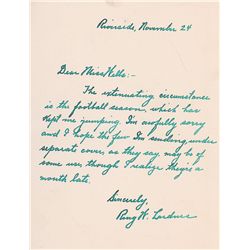 Riverside, November 24
Dear Miss Wells:-
The extenuating circumstance
is the football season, which has
kept me jumping. I'm awfully sorry
and I hope the few I'm sending, under
separate cover, as they say, may be of
some use, though I realize they're a
month late.
Sincerely,
Ring W. Lardner